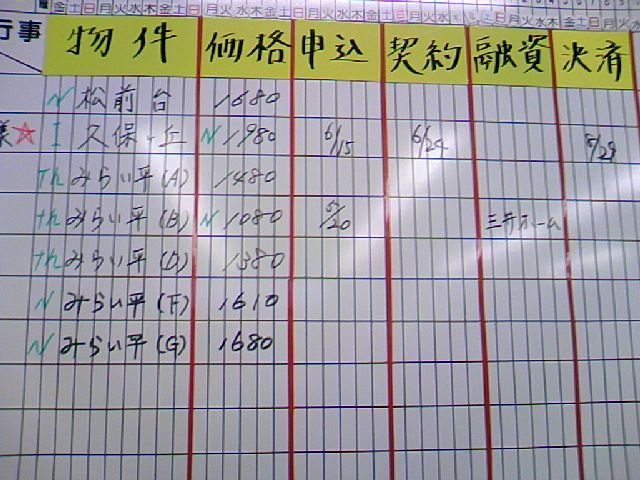 曜 金土日月火水木金土日月火水木金土日月火水木金土日月火水木金土日月火水木金土日月
行事 物件 価格 申込 契約 融資 決済
N 松前台 1680
様☆ I 久保ヶ丘 N 1980 6/15 6/29
Th みらい平(A) 1480
Th みらい平(B) N 1080 5/20 三井ホーム
Th みらい平(D) 1380
N みらい平(F) 1610
N みらい平(G) 1680